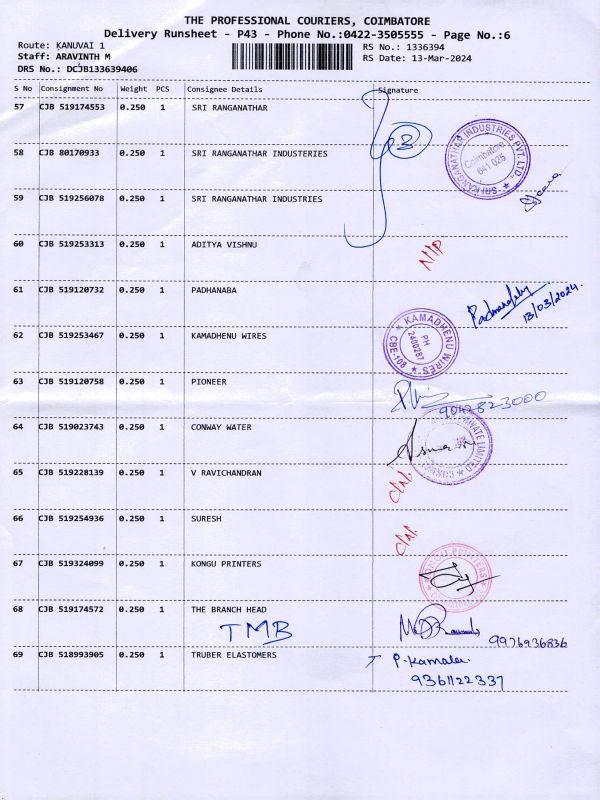 THE PROFESSIONAL COURIERS, COIMBATORE
Delivery Runsheet - P43 - Phone No.:0422-3505555 - Page No.:6
Route: KANUVAI 1
Staff: ARAVINTH M
DRS No.: DCJB133639406
RS No.: 1336394
RS Date: 13-Mar-2024
S No Consignment No Weight PCS Consignee Details Signature
57 CJB 519174553 0.250 1 SRI RANGANATHAR
58 CJB 80170933 0.250 1 SRI RANGANATHAR INDUSTERIES
SRI RANGANATHAR INDUSTRIES PVT. LTD.
Coimbatore
641 025
59 CJB 519256078 0.250 1 SRI RANGANATHAR INDUSTRIES
60 CJB 519253313 0.250 1 ADITYA VISHNU
N/P
61 CJB 519120732 0.250 1 PADHANABA
13/03/2024.
62 CJB 519253467 0.250 1 KAMADHENU WIRES
KAMADHENU WIRES
CBE-108
PH
2400287
63 CJB 519120758 0.250 1 PIONEER
9042823000
64 CJB 519023743 0.250 1 CONWAY WATER
PRIVATE LIMITED
65 CJB 519228139 0.250 1 V RAVICHANDRAN
66 CJB 519254936 0.250 1 SURESH
67 CJB 519324099 0.250 1 KONGU PRINTERS
KONGU PRINTERS
68 CJB 519174572 0.250 1 THE BRANCH HEAD
TMB
9976936836
69 CJB 518993905 0.250 1 TRUBER ELASTOMERS
P. Kamala
9361122337